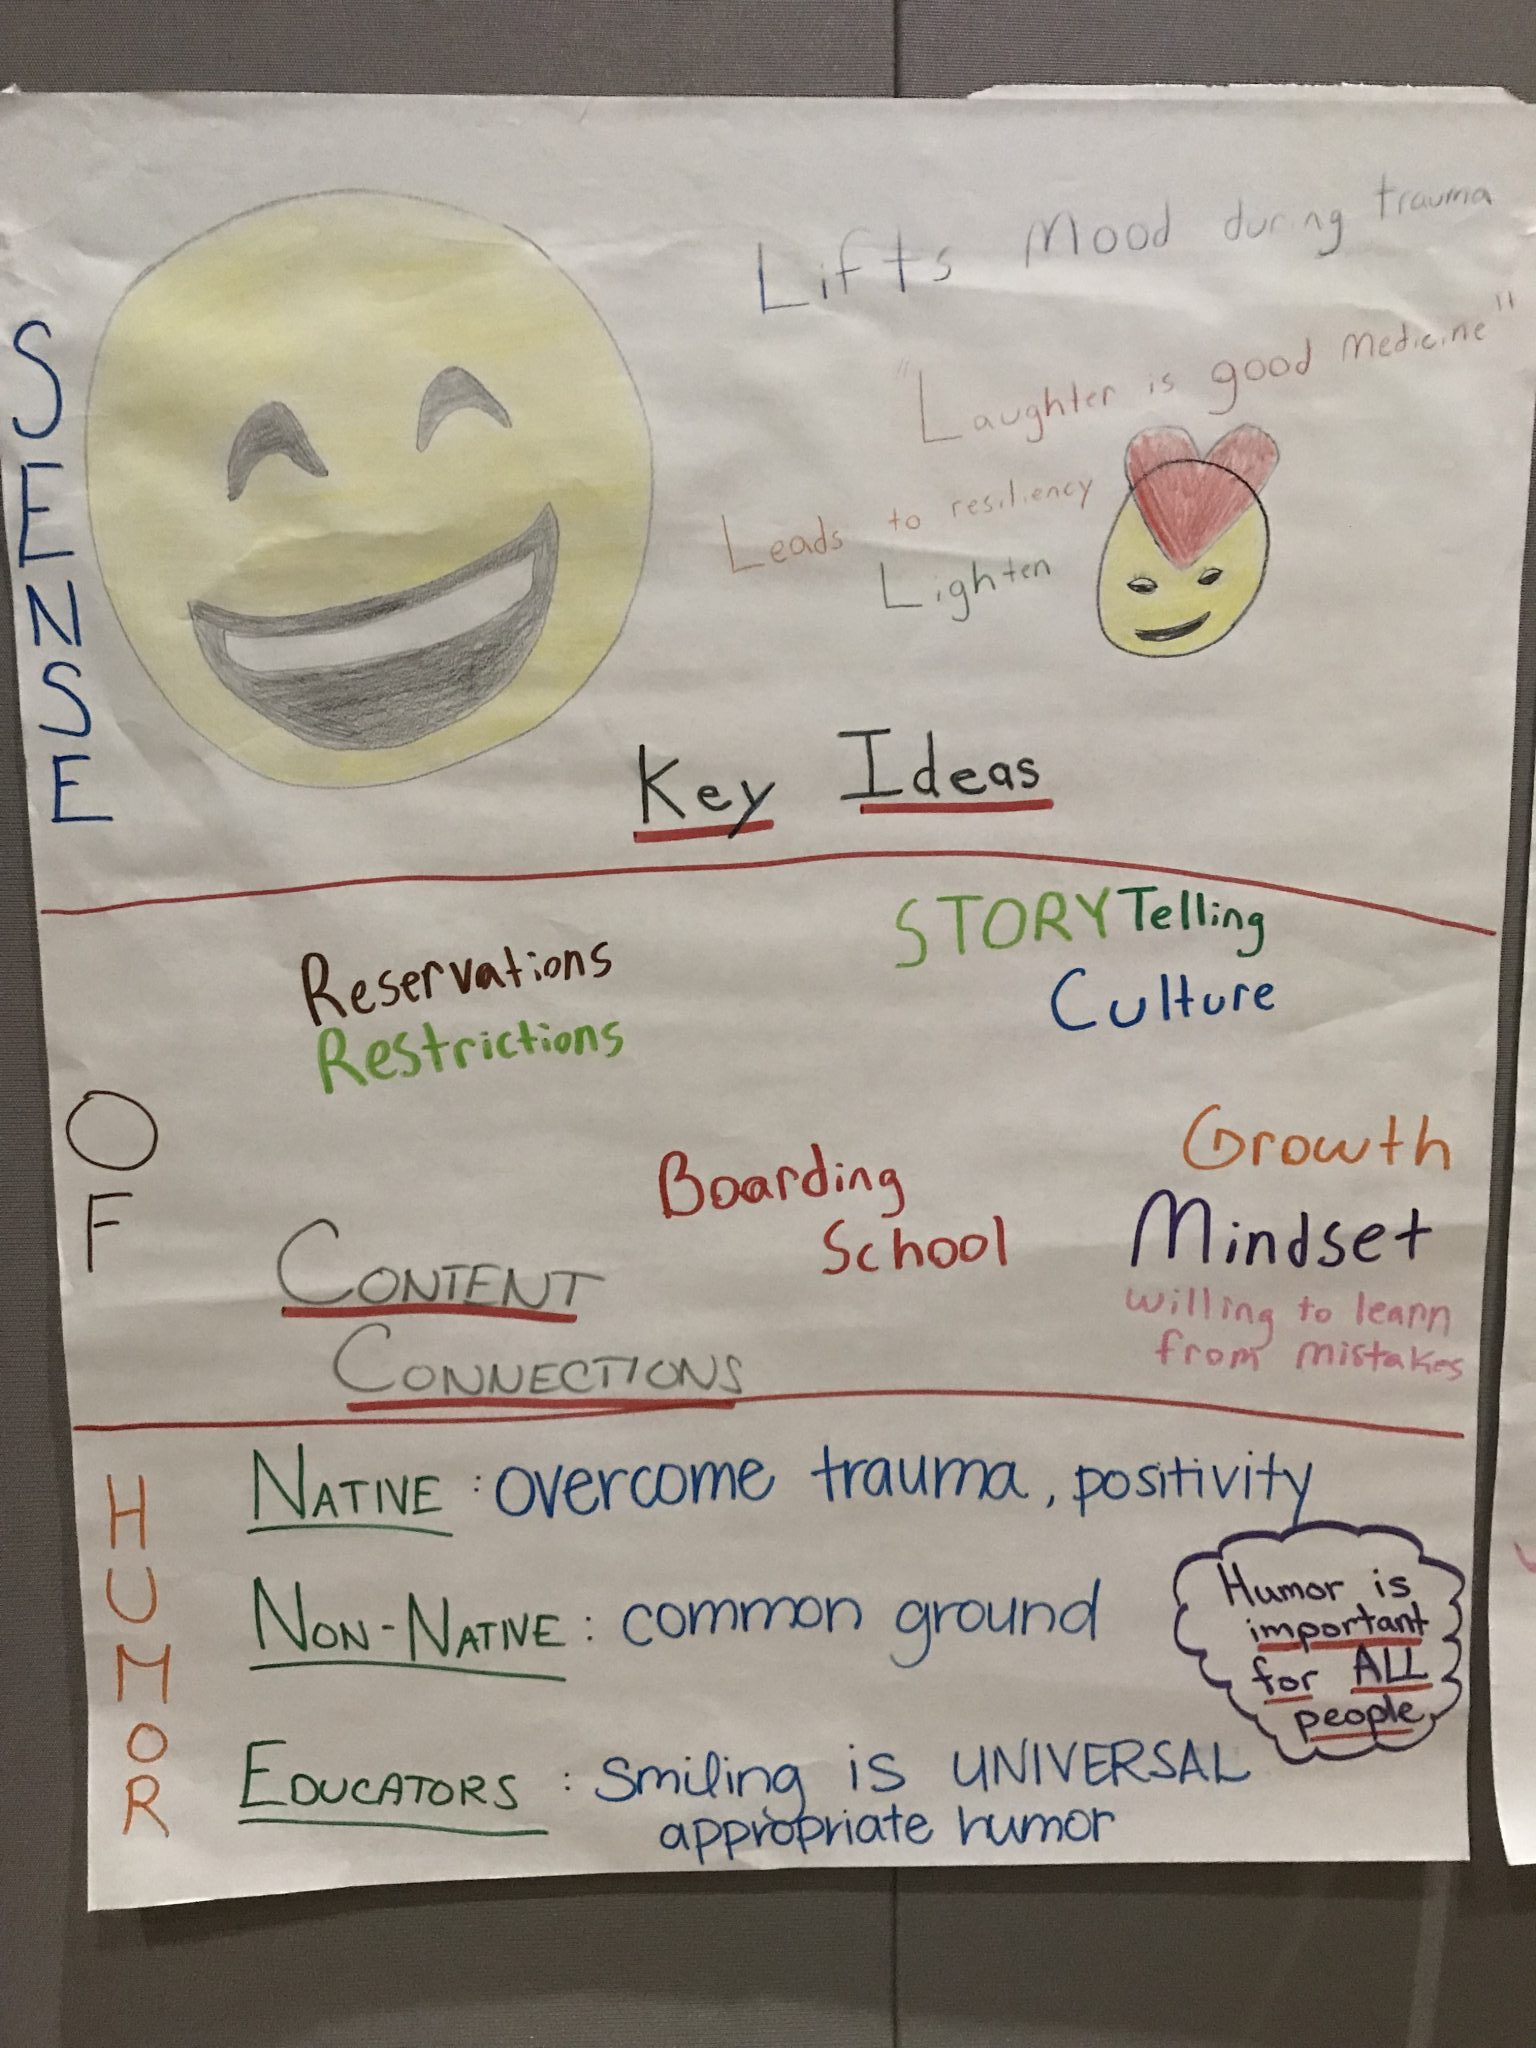 SENSE
OF
HUMOR
Lifts Mood during trauma
"Laughter is good medicine"
Leads to resiliency
Lighten
Key Ideas
STORYTelling
Culture
Reservations
Restrictions
Boarding
School
Growth
Mindset
willing to learn
from mistakes
CONTENT
CONNECTIONS
NATIVE: overcome trauma, positivity
NON-NATIVE: common ground
Humor is
important
for ALL
people
EDUCATORS: smiling is UNIVERSAL
appropriate humor